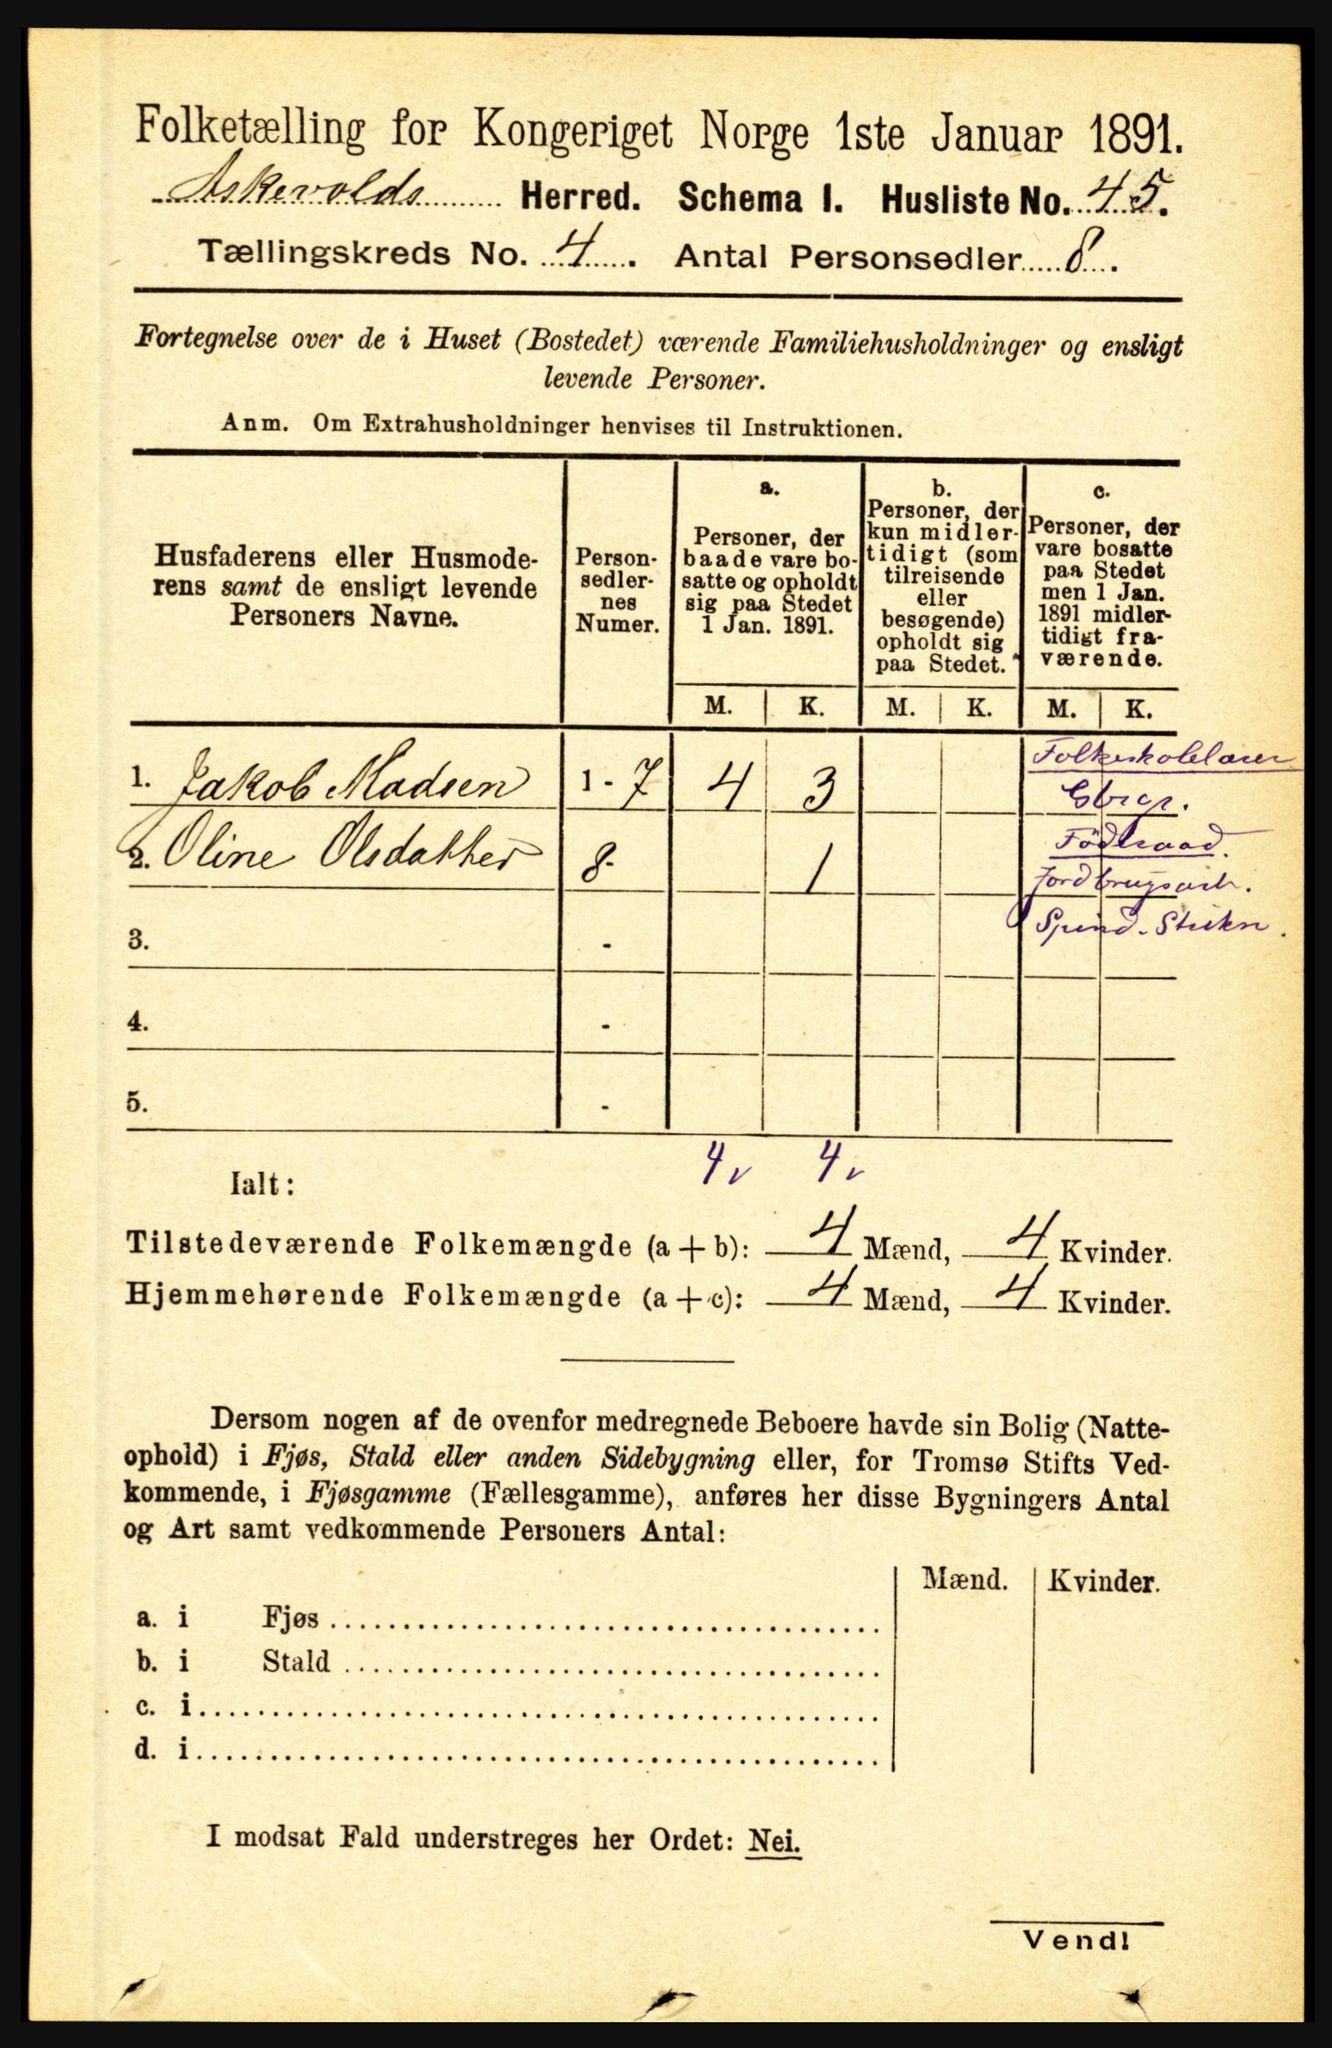 Folketælling for Kongeriget Norge 1ste Januar 1891.
Askevolds Herred. Schema I. Husliste No. 45.
Tællingskreds No. 4. Antal Personsedler 8.
Fortegnelse over de i Huset (Bostedet) værende Familiehusholdninger og ensligt
levende Personer.
Anm. Om Extrahusholdninger henvises til Instruktionen.
Husfaderens eller Husmode-
rens samt de ensligt levende
Personers Navne.
Person-
sedler-
nes
Numer.
a.
Personer, der
baade vare bo-
satte og opholdt
sig paa Stedet
1 Jan. 1891.
b.
Personer, der
kun midler-
tidigt (som
tilreisende
eller
besøgende)
opholdt sig
paa Stedet.
c.
Personer, der
vare bosatte
paa Stedet
men 1 Jan.
1891 midler-
tidigt fra-
værende.
M. K. M. K. M. K.
1. Jakob Madsen 1 - 7 4 3
Folkeskolelærer
Gbrgr.
2. Oline Olsdatter 8- 1
Födraad.
Jordbrugsarb.
Spind. Strikn.
3. -
4. -
5. -
4 v 4 v
Ialt:
Tilstedeværende Folkemængde (a + b): 4 Mænd, 4 Kvinder.
Hjemmehørende Folkemængde (a + c): 4 Mænd, 4 Kvinder.
Dersom nogen af de ovenfor medregnede Beboere havde sin Bolig (Natte-
ophold) i Fjøs, Stald eller anden Sidebygning eller, for Tromsø Stifts Ved-
kommende, i Fjøsgamme (Fællesgamme), anføres her disse Bygningers Antal
og Art samt vedkommende Personers Antal:
Mænd. Kvinder.
a. i Fjøs
b. i Stald
c. i
d. i
I modsat Fald understreges her Ordet: Nei.
Vend!